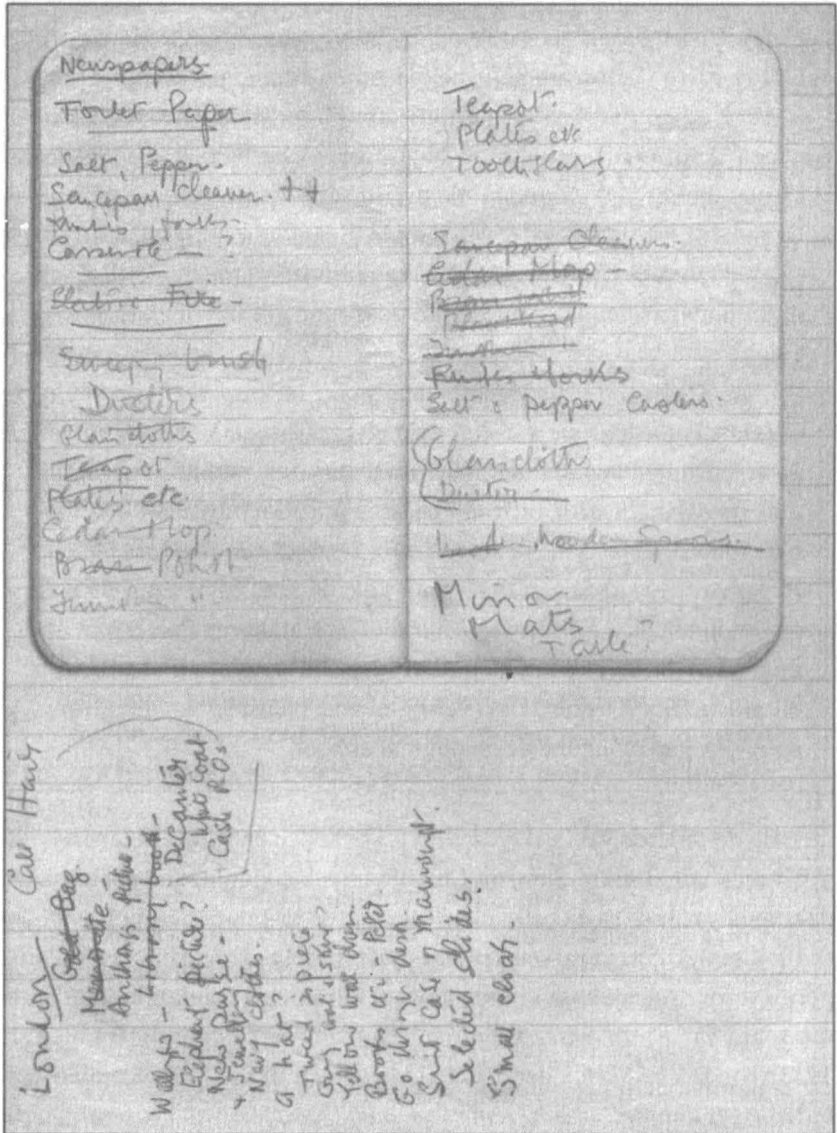 Newspapers
Toilet Paper
Salt, Pepper.
Saucepan Cleaner. ++
forks
Casserole - ?
Electric Fire -
Sweeping brush
Dusters
Glasscloths
Teapot
Plates etc
Cedar Mop
Brass Polish
Furniture "
Teapot.
Plates etc
Saucepan Cleaners.
Cedar Mop -
Brass polish
Knifes & forks
Salt & pepper Casters.
Glasscloths
Duster
wooden Spoons.
Mirror
Mats
Table
London Call Hair
Bag
picture -
Library book -
Wallys - Decanter
Elephant picture? coat
New Purse - Cash P.Os
+ Jewellery
Navy clothes.
A hat?
Tweed 2 piece
Grey
Yellow wool
Books - Peter.
Go through desk.
Suit Case of Manuscript.
Selected slides.
Small clock.